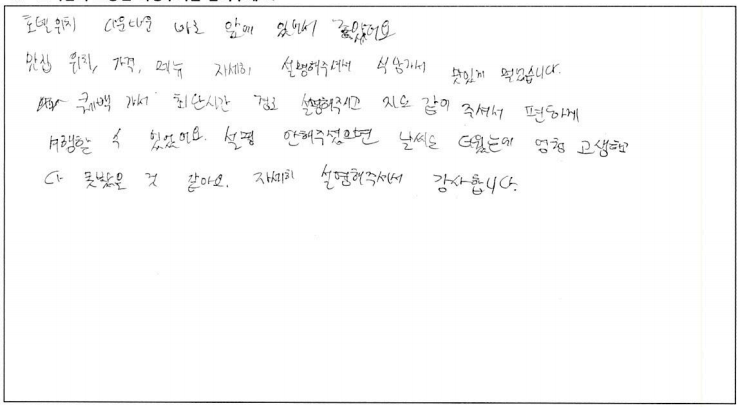 호텔위치 다운타운 바로 앞에 있어서 좋았어요
맛집 위치, 가격, 메뉴 자세히 설명해주셔서 식당가서 맛있게 먹었습니다.
퀘백 가서 최단시간 경로 설명해주시고 지도 같이 주셔서 편하게
여행할 수 있었어요. 설명 안해주셨으면 날씨도 더웠는데 엄청 고생하고
다 못봤을 것 같아요. 자세히 설명해주셔서 감사합니다.